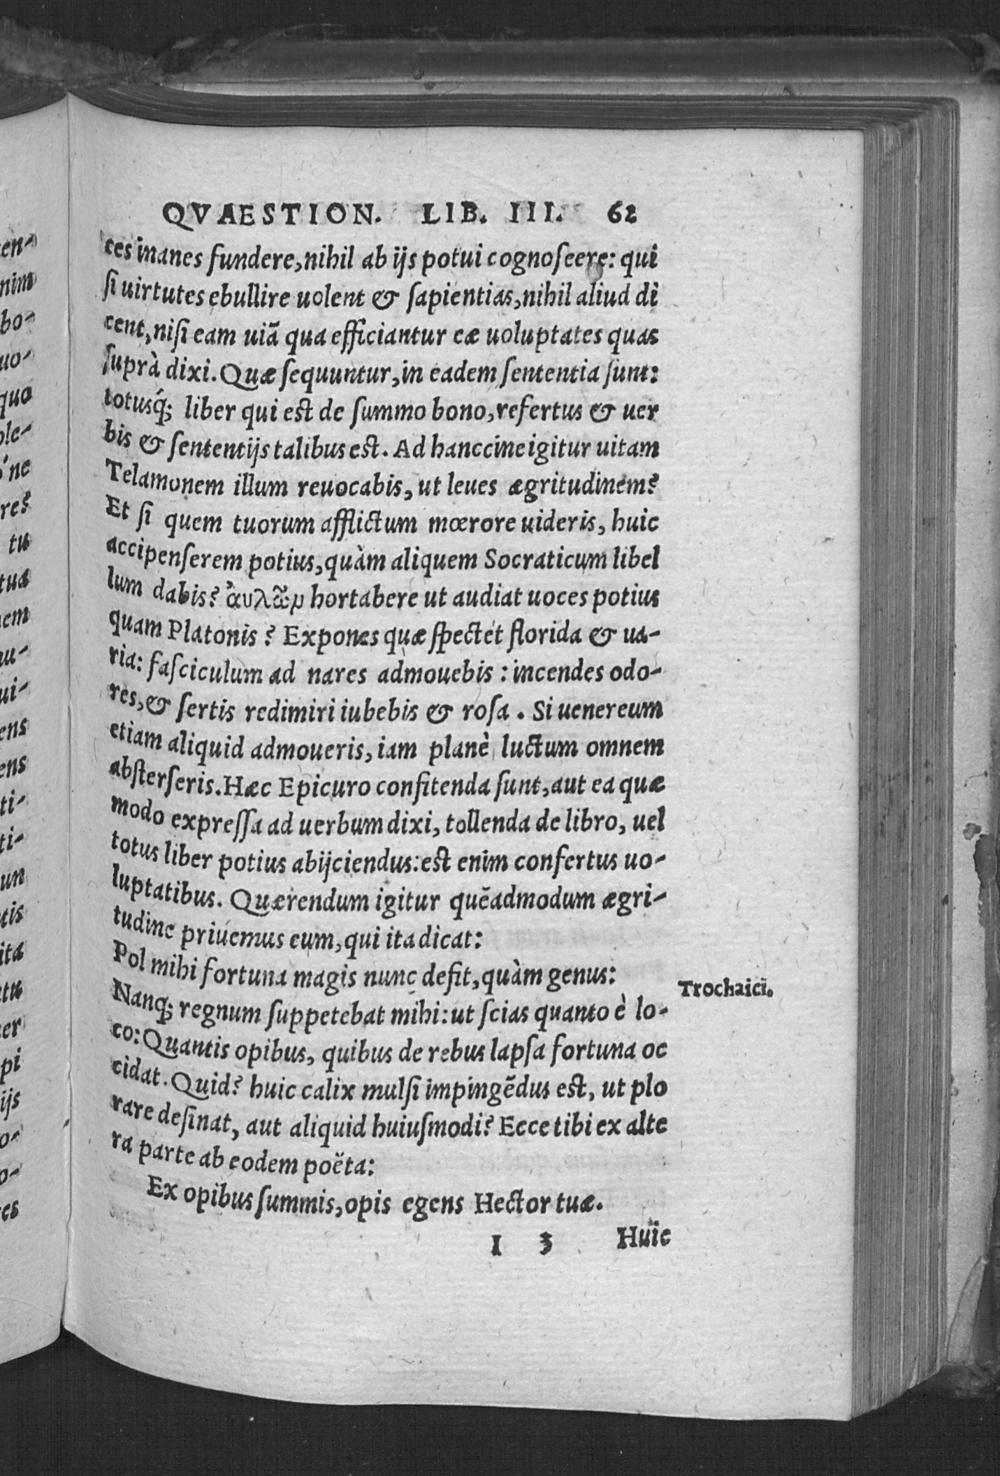 QVAESTION. LIB. III. 62
ces inanes fundere, nihil ab ijs potui cognoscere: qui
si uirtutes ebullire uolent & sapientias, nihil aliud di
cent, nisi eam uiã qua efficiantur eæ uoluptates quas
suprà dixi. Quæ sequuntur, in eadem sententia sunt:
totusq́; liber qui est de summo bono, refertus & uer
bis & sententijs talibus est. Ad hanccine igitur uitam
Telamonem illum reuocabis, ut leues ægritudinem?
Et si quem tuorum afflictum mœrore uideris, huic
accipenserem potius, quàm aliquem Socraticum libel
lum dabis? ἀυλῶμ hortabere ut audiat uoces potius
quam Platonis? Expones quæ spectet florida & ua-
ria: fasciculum ad nares admouebis: incendes odo-
res, & sertis redimiri iubebis & rosa. Si uenereum
etiam aliquid admoueris, iam planè luctum omnem
absterseris. Hæc Epicuro confitenda sunt, aut ea quæ
modo expressa ad uerbum dixi, tollenda de libro, uel
totus liber potius abijciendus: est enim confertus uo-
luptatibus. Quærendum igitur quẽadmodum ægri-
tudine priuemus eum, qui ita dicat:
Pol mihi fortuna magis nunc defit, quàm genus:
Trochaici.
Nanq; regnum suppetebat mihi: ut scias quanto è lo-
co: Quantis opibus, quibus de rebus lapsa fortuna oc
cidat. Quid? huic calix mulsi impingẽdus est, ut plo
rare desinat, aut aliquid huiusmodi? Ecce tibi ex alte
ra parte ab eodem poëta:
Ex opibus summis, opis egens Hector tuæ.
I 3 Huic
en-
nim
bo-
uo-
quo
ple-
ne
res
tu
tua
em
u-
ui-
ens
ens
ti-
ti-
un
tis
ita
tu
er
pi
ijs
o-
o-
es